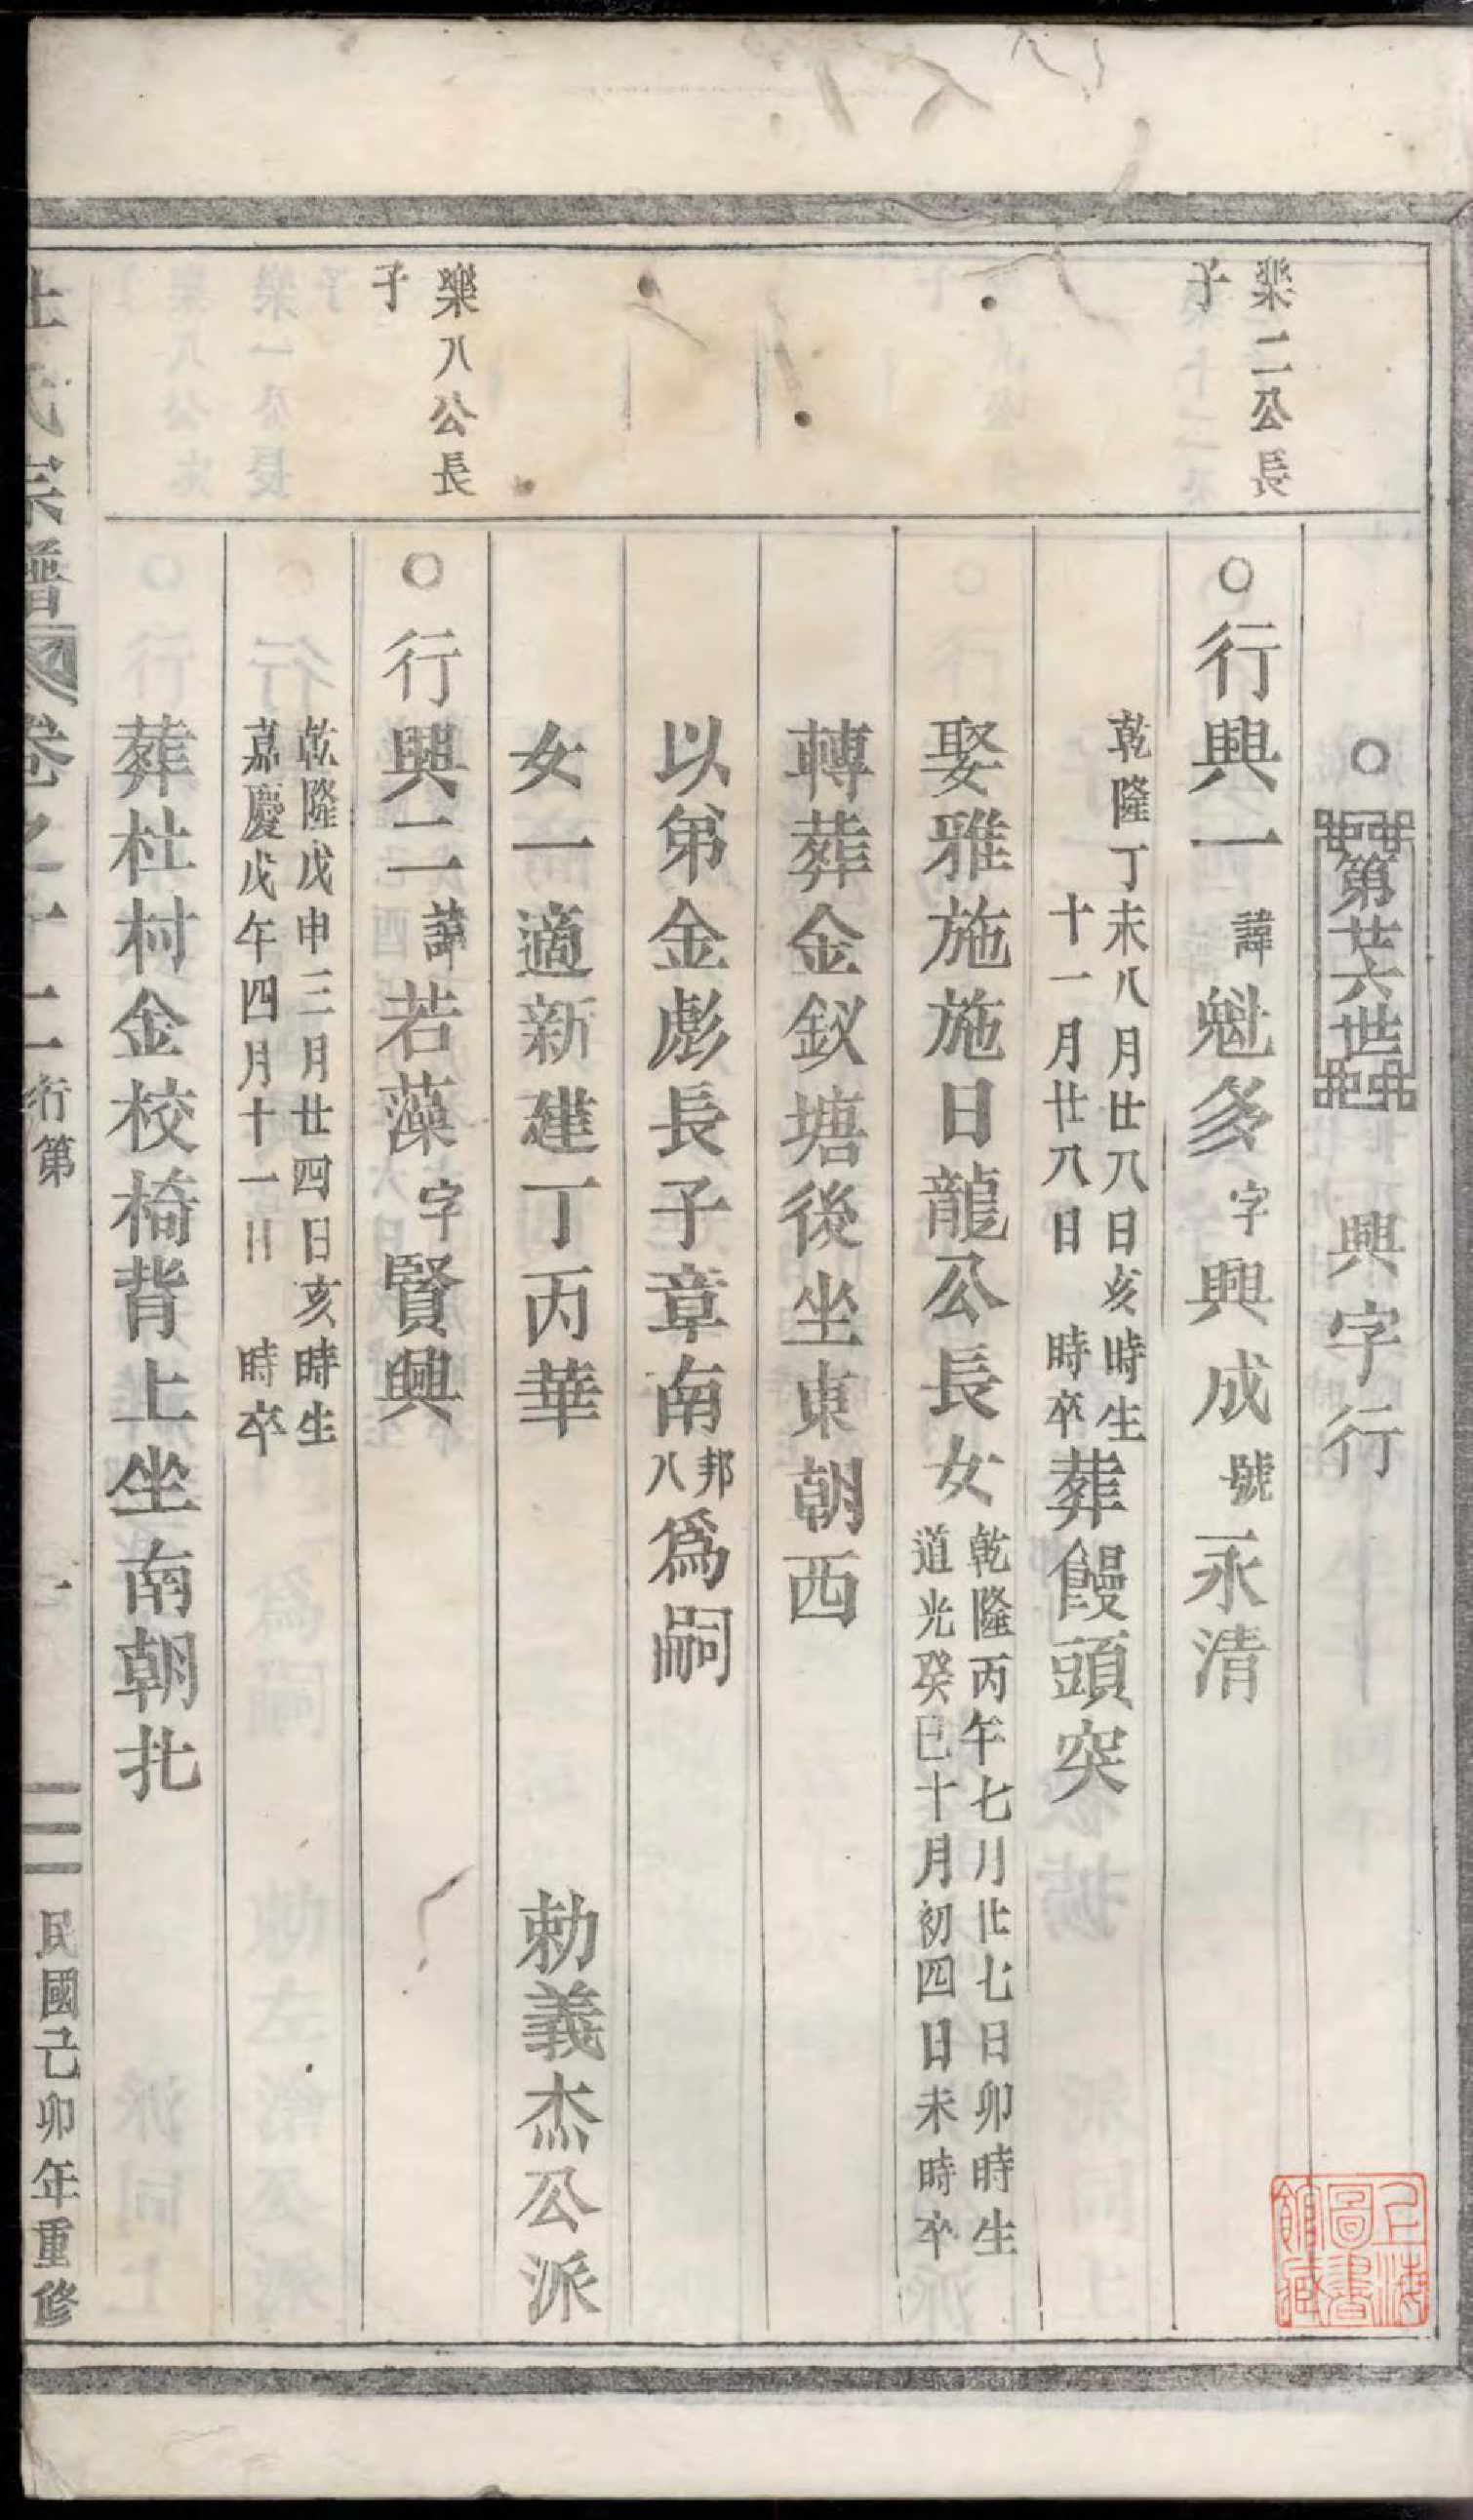 ○第廿六世 興字行
樂二公長子
○行興一諱魁多字興成號永清
乾隆丁未八月廿八日亥時生
十一月廿八日 時卒
葬饅頭突
娶雅施施日龍公長女
乾隆丙午七月廿七日卯時生
道光癸巳十月初四日未時卒
轉葬金釵塘後坐東朝西
以弟金彪長子章南邦八爲嗣
女一適新建丁丙華 勅義杰公派
樂八公長子
○行興二諱若藻字賢興
乾隆戊申三月廿四日亥時生
嘉慶戊午四月十一日 時卒
葬杜村金校椅背上坐南朝北
杜氏宗譜 卷之十二 行第 民國己卯年重修
上海圖書館藏